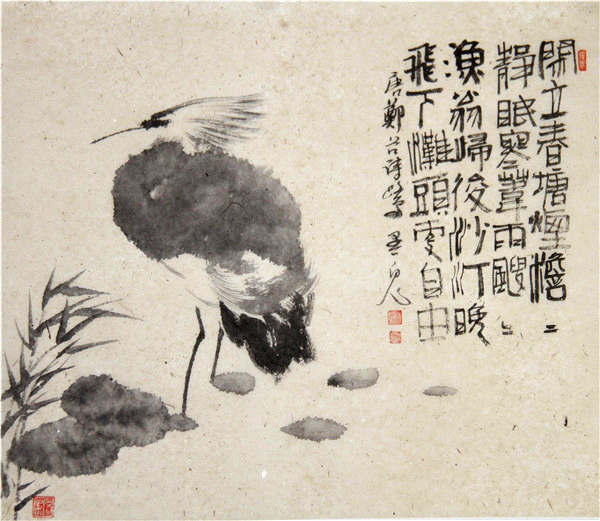 閑立春塘煙澹〻
靜眠寒葦雨颼〻
漁翁歸後沙汀晚
飛下灘頭更自由
唐鄭谷詩